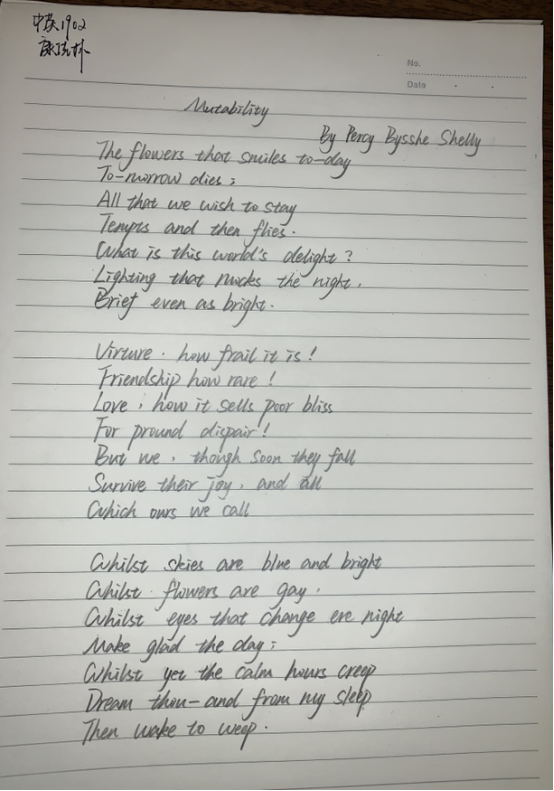 中英1902
No.
Date
Mutability
By Percy Bysshe Shelly
The flowers that smiles to-day
To-morrow dies;
All that we wish to stay
Tempts and then flies.
What is this world's delight?
Lighting that mocks the night.
Brief even as bright.
Virture. how frail it is!
Friendship how rare!
Love, how it sells poor bliss
For pround dispair!
But we, though soon they fall
Survive their joy, and all
Which ours we call
Whilst skies are blue and bright
Whilst flowers are gay.
Whilst eyes that change ere night
Make glad the day;
Whilst yet the calm hours creep
Dream thou-and from my sleep
Then wake to weep.